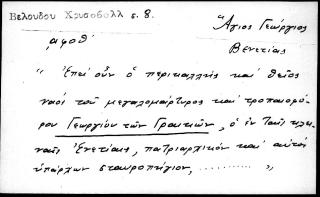 Βελουδου Χρυσοβουλλ σ. 8.
Ἅγιος Γεώργιος
Βενετίας
αφοθ'
" Ἐπεί οὖν ὁ περικαλλής καί θεῖος
ναός τοῦ μεγαλομάρτυρος καί τροπαιοφό-
ρου Γεωργίου τῶν Γραικῶν, ὁ ἐν ταῖς κλει-
ναῖς Ἐνετίαις, πατριαρχικόν καί αὐτός
ὑπάρχων σταυροπήγιον, .......... "